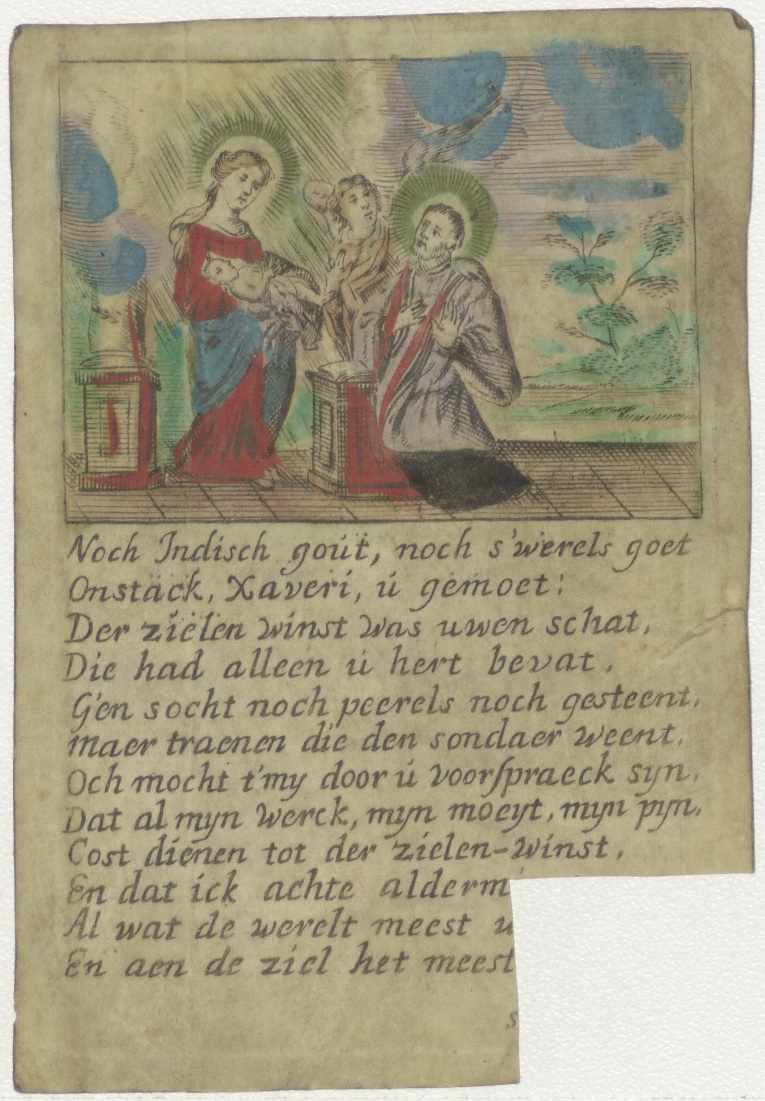 Noch Indisch goút, noch s'werels goet
Onstack, Xaveri, ú gemoet:
Der zielen winst was uwen schat,
Die had alleen ú hert bevat.
G'en socht noch peerels noch gesteent,
Maer traenen die den sondaer weent.
Och mocht t'my door ú voorspraeck syn,
Dat al myn werck, myn moeyt, myn pyn,
Cost dienen tot der zielen-winst,
En dat ick achte alderm
Al wat de werelt meest
En aen de ziel het meest